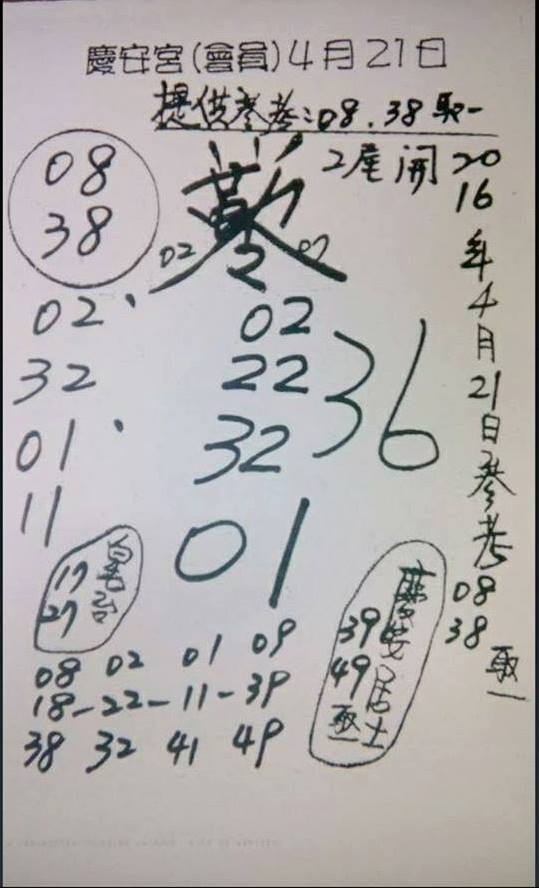 慶安宮(會員)4月21日
提供參考:08.38取一
2星開
08
38
02 07
02、
32
01、
11
02
22
32
36
01
2016年4月21日參考
08
38
取一
17
27
慶安居士
39
49
取一
08 02 01 09
18-22-11-39
38 32 41 49